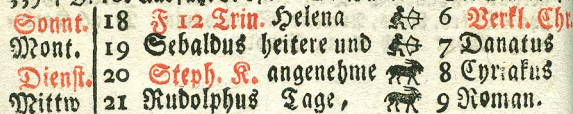 Sonnt. 18 F 12 Trin. Helena 6 Verkl. Chr.
Mont. 19 Sebaldus heitere und 7 Danatus
Dienst. 20 Steph. K. angenehme 8 Cyriakus
Mittw 21 Rudolphus Tage, 9 Roman.